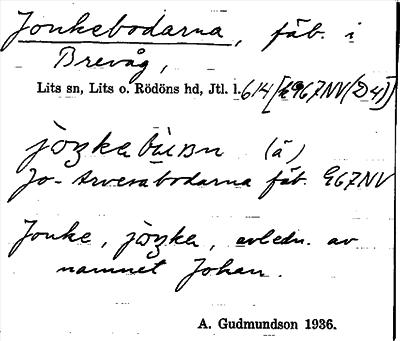 Jonkebodarna, fäb. i
Brevåg,
Lits sn, Lits o. Rödöns hd, Jtl. l. 614 [967NV(D4)]
(ä)
Jo-Arvesabodarna fäb. 967NV
Jonke, avledn. av
namnet Johan.
A. Gudmundson 1936.